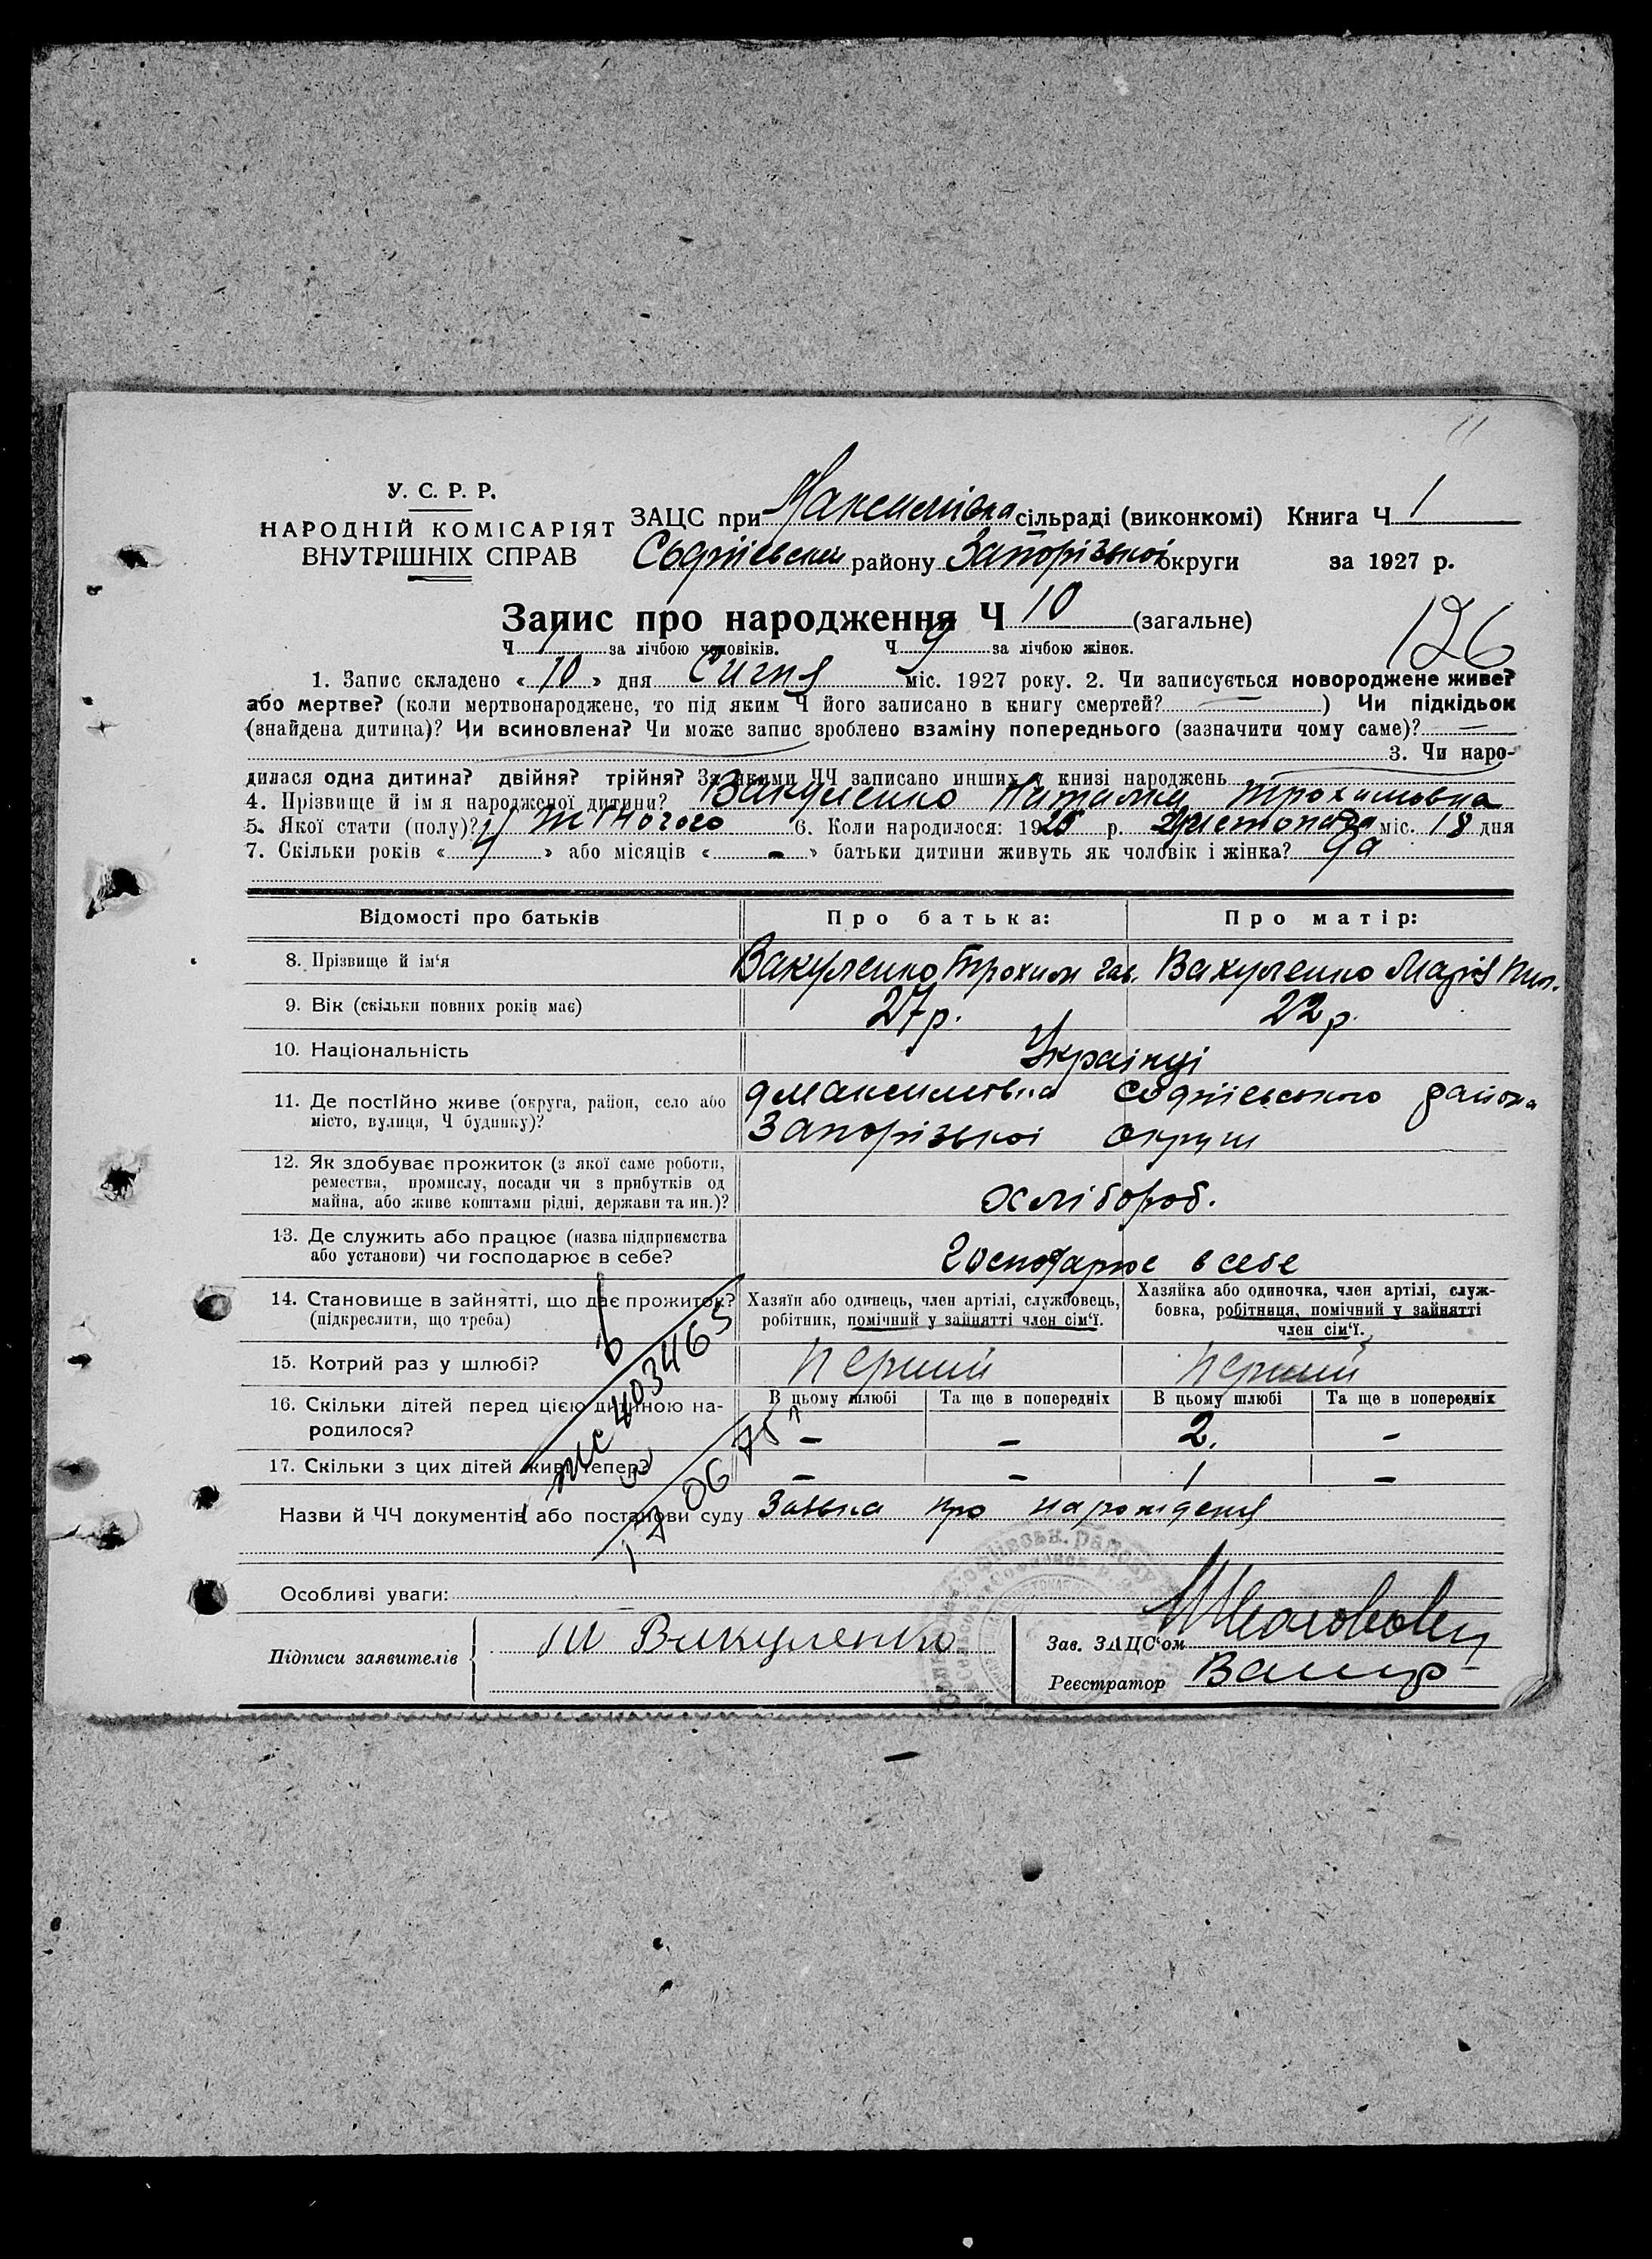 У. С. Р. Р.
НАРОДНІЙ КОМІСАРІЯТ
ВНУТРІШНІХ СПРАВ
ЗАЦС при Максимівка сільраді (виконкомі) Книга Ч 1
Софіївськ району Запорізької округи за 1927 р.
Запис про народження Ч 10 (загальне)
Ч за лічбою чоловіків. Ч 9 за лічбою жінок.
126
1. Запис складено « 10 » дня Сичня міс. 1927 року. 2. Чи записується новороджене живе?
або мертве? (коли мертвонароджене, то під яким Ч його записано в книгу смертей? — ) Чи підкідьок
(знайдена дитина)? Чи всиновлена? Чи може запис зроблено взаміну попереднього (зазначити чому саме)? —
3. Чи наро-
дилася одна дитина? двійня? трійня? За якими ЧЧ записано инших у книзі народжень
4. Прізвище й ім'я народженої дитини? Вакуленко Наталка Трохимовна
5. Якої статі (полу)? жіночого 6. Коли народилося: 1926 р. Листопада міс. 18 дня
7. Скільки років « 4 » або місяців « - » батьки дитини живуть як чоловік і жінка? да
Відомості про батьків Про батька: Про матір:
8. Прізвище й ім'я Вакуленко Трохим Гав. Вакуленко Марія Пил.
9. Вік (скільки повних років має) 27 р. 22 р.
10. Національність Українці
11. Де постійно живе (округа, район, село або
місто, вулиця, Ч будинку)?
д Максимовка Софіїевського района
Запорізької округи
12. Як здобуває прожиток (з якої саме роботи,
ремества, промислу, посади чи з прибутків од
майна, або живе коштами рідні, держави та ин.)?
хлібороб.
13. Де служить або працює (назва підприємства
або установи) чи господарює в себе?
Господарює в себе
14. Становище в зайнятті, що дає прожиток?
(підкреслити, що треба)
Хазяїн або одинець, член артілі, службовець,
робітник, помічний у зайнятті член сім'ї.
Хазяйка або одиночка, член артілі, служ-
бовка, робітниця, помічний у зайнятті
член сім'ї.
15. Котрий раз у шлюбі? перший перший
16. Скільки дітей перед цією дитиною на-
родилося?
В цьому шлюбі Та ще в попередніх В цьому шлюбі Та ще в попередніх
– – 2. –
17. Скільки з цих дітей живі тепер? – – 1 –
403465
17 06 75
Назви й ЧЧ документів або постанови суду Заявка про нарождения
Особливі уваги:
Підписи заявителів Вакуленко
Зав. ЗАЦС'ом
Реєстратор